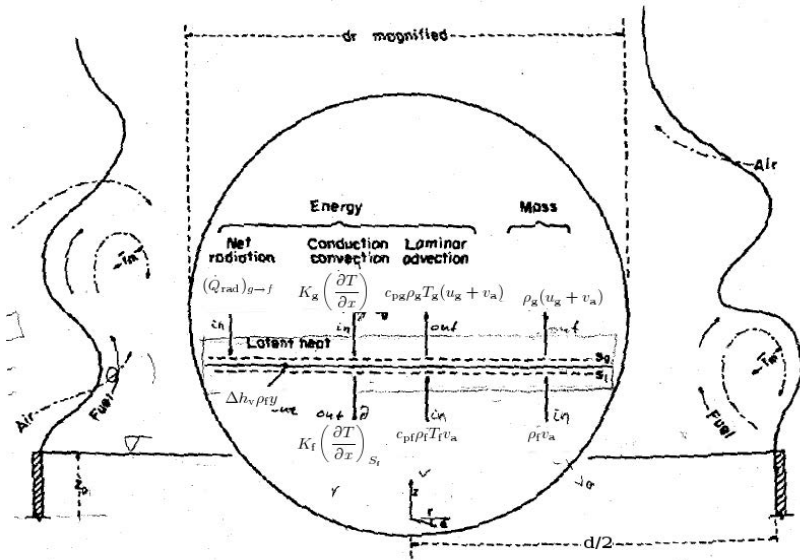 dr magnified
Air
Energy
Mass
Net radiation
Conduction convection
Laminar advection
(Q̇_rad)_{g→f}
K_g (∂T/∂x)
c_pg ρ_g T_g (u_g + v_a)
ρ_g (u_g + v_a)
in
in
out
out
Latent heat
S_g
S_l
Δh_v ρ_f y
out
in
in
K_f (∂T/∂x)_{S_f}
c_pf ρ_f T_f v_a
ρ_f v_a
Air
Fuel
Fuel
z
r
d/2